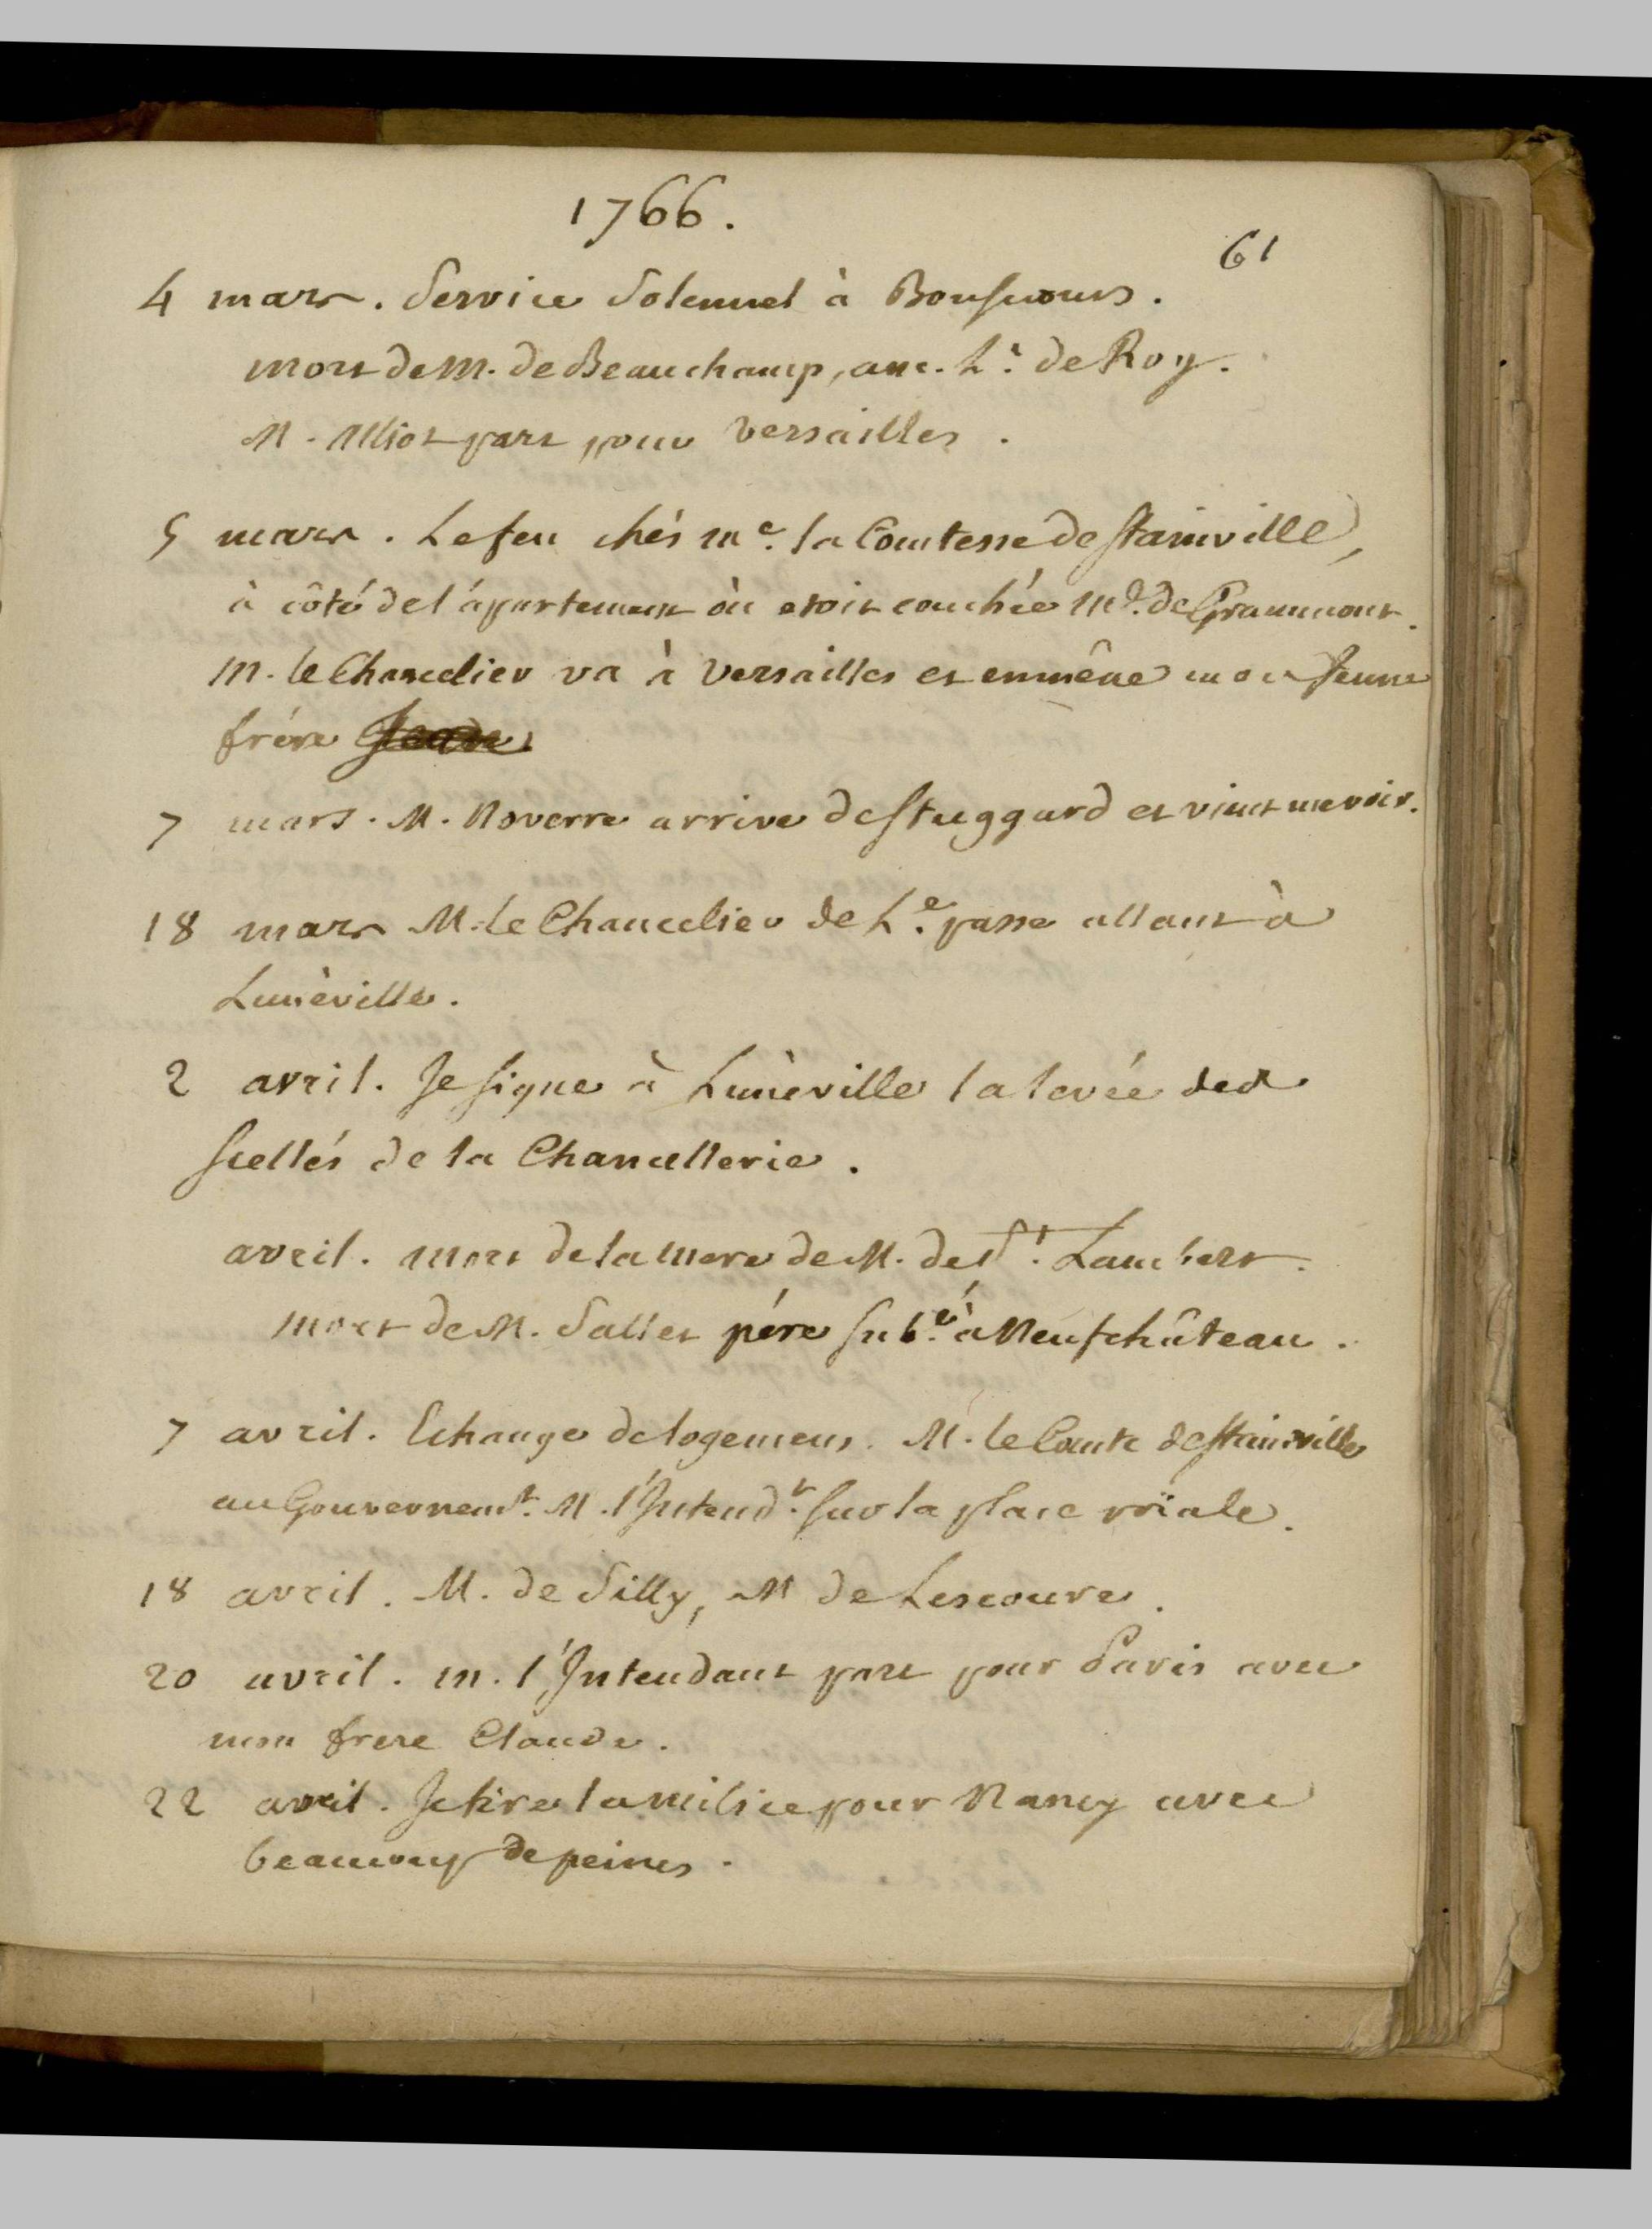 1766.
61
4 mars. Service Solennel à Bonsecours.
mort de M. de Beauchamp, anc. Lt. de Roy.
M. Alliot part pour Versailles.
5 mars. Le feu chés me. la Comtesse de Stainville,
à côté de l'ápartement où etoit couchée Mde. de Grammont.
M. le Chancelier va à Versailles et emmêne mon Jeune
frére
7 mars. M. Noverre arrive de Stuggard et vient me voir.
18 mars M. le Chancelier de Le. passe allant à
Lunéville.
2 avril. Je signe à Lunéville la levée des
scellés de la Chancellerie.
avril. mort de la Mere de M. de St. Lambert.
mort de M. Sallet pére sub.é à Neufchâteau.
7 avril. Echange de logemens. M. le Comte de Stainville
au Gouvernemt. M. l'Intendt. sur la place roïale.
18 avril. M. de Silly, M de Lescoure.
20 avril. M. l'Intendant part pour Paris avec
mon frere Claude.
22 avril. Je tire la milice pour Nancy avec
beaucoup de peines.